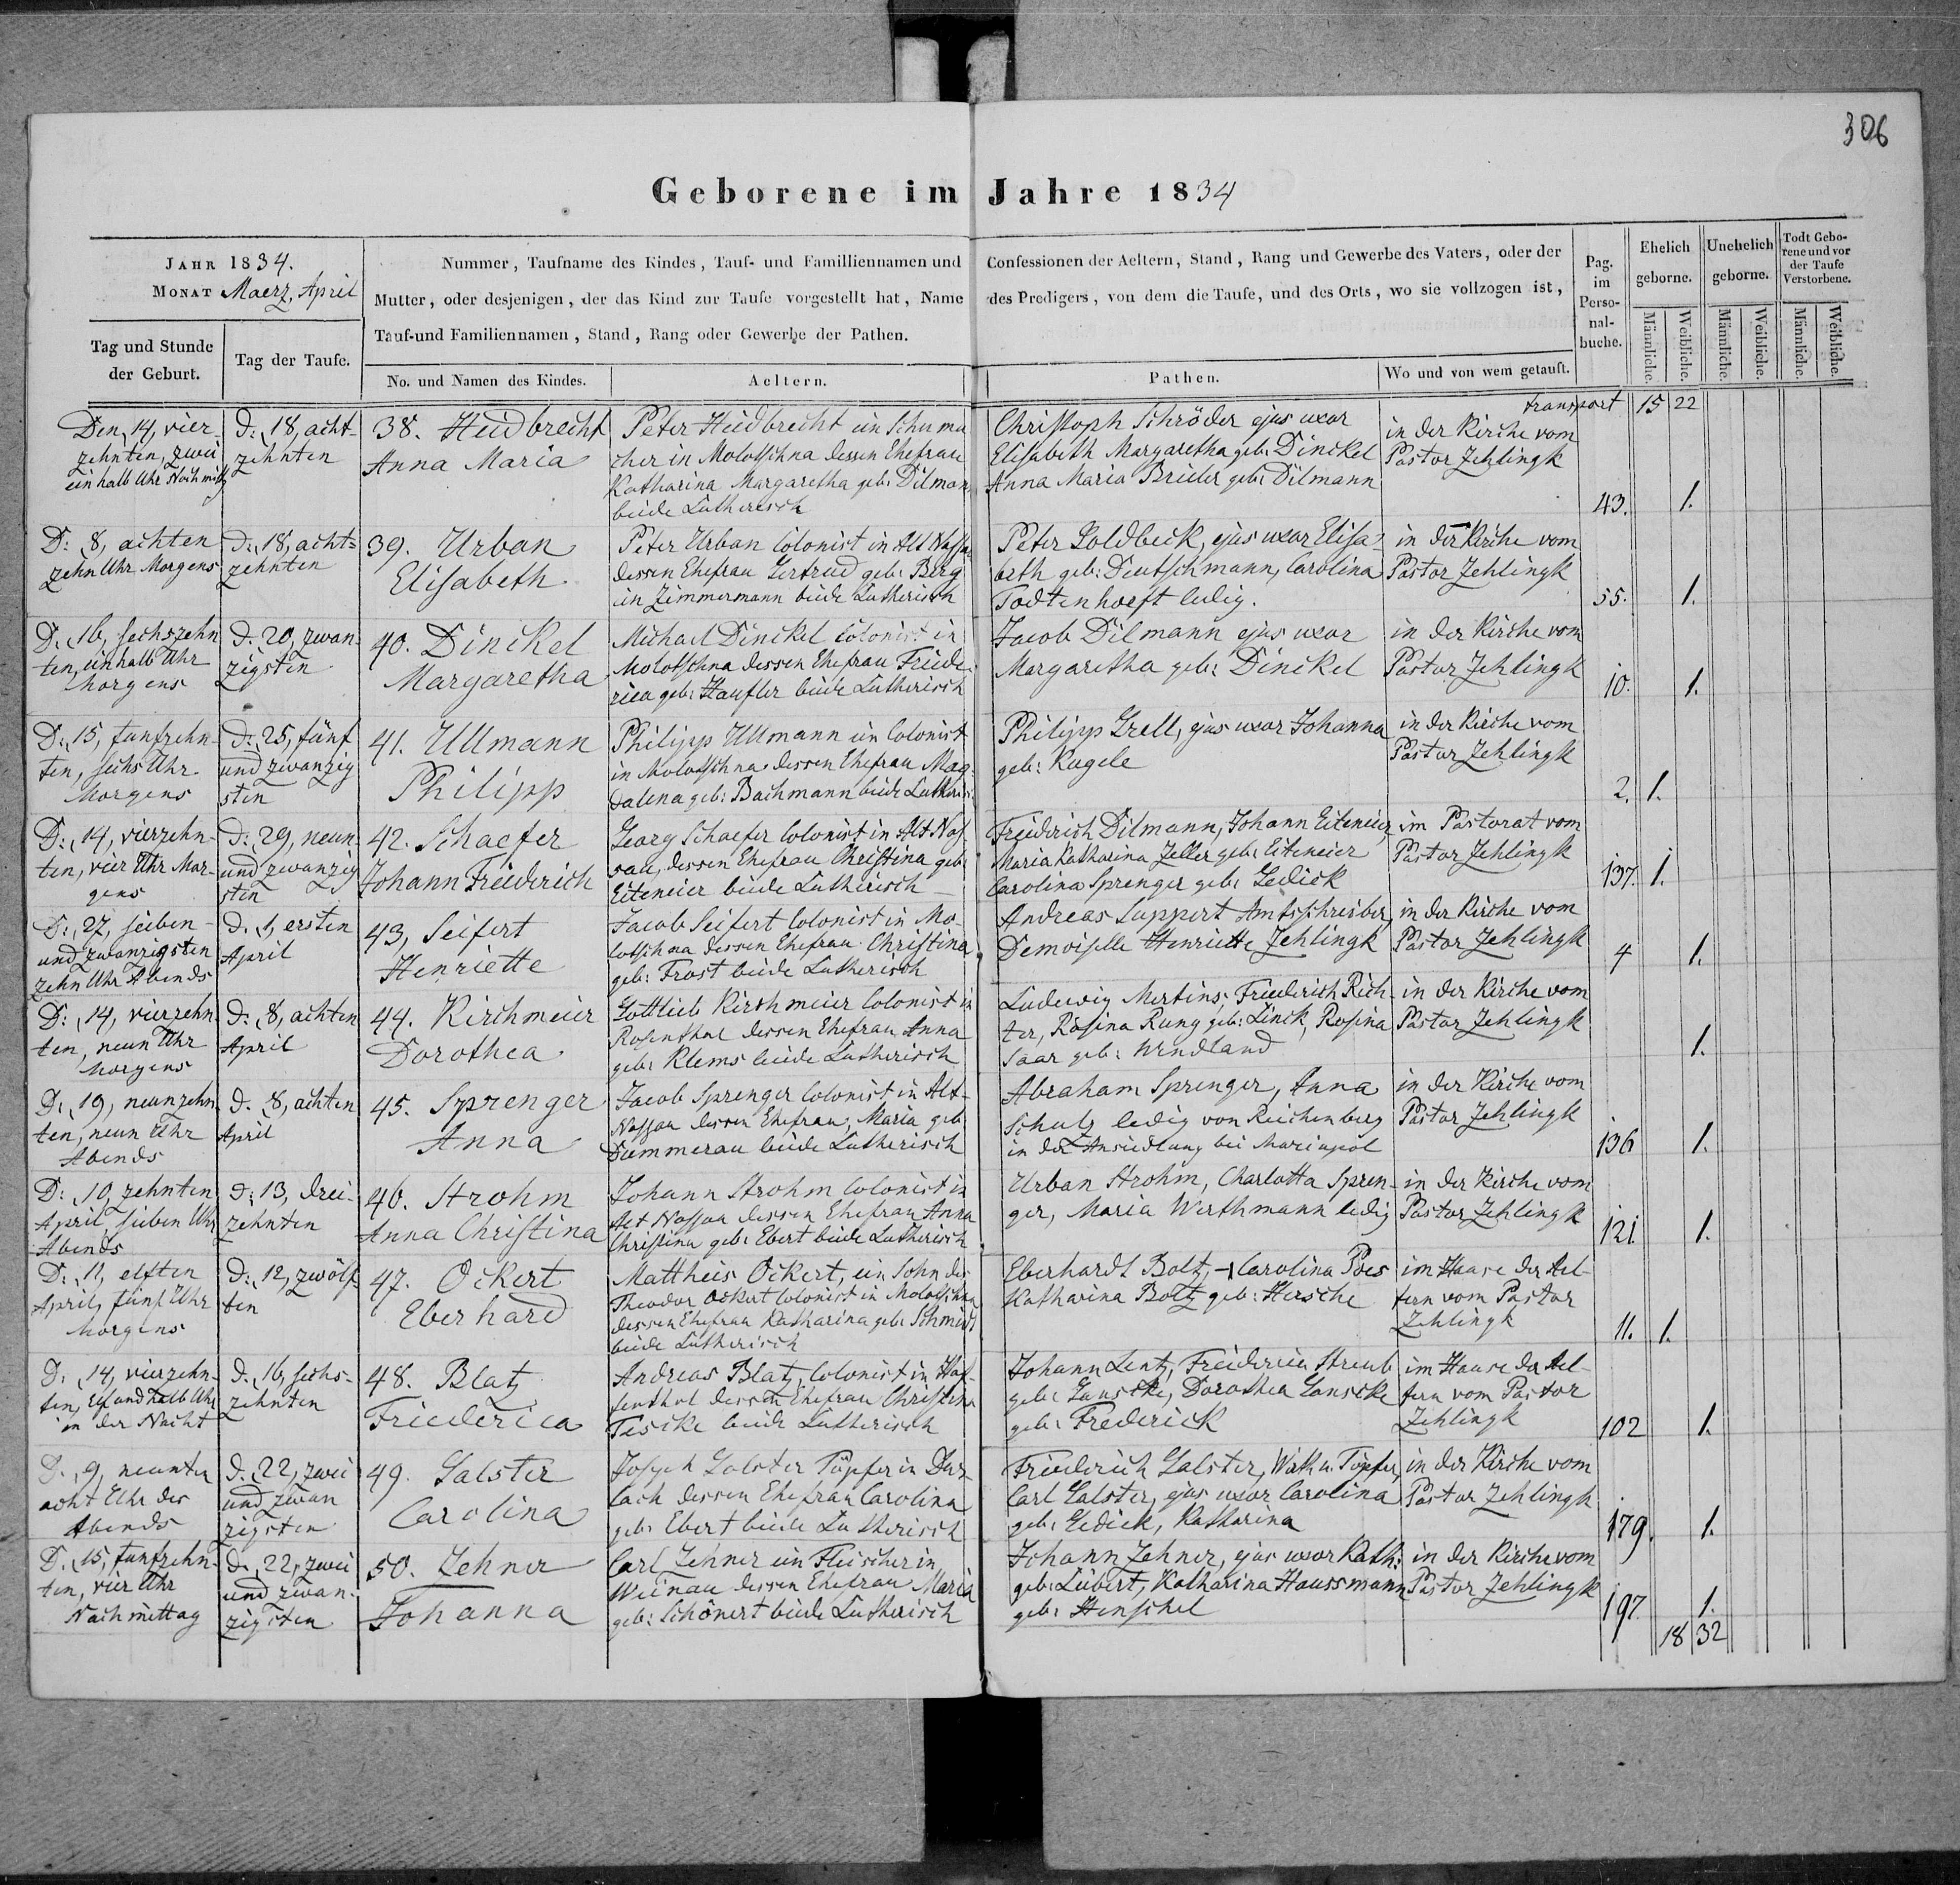 306
Geborene im Jahre 1834
JAHR 1834.
MONAT Maerz, April
Nummer, Taufname des Kindes, Tauf- und Familliennamen und Confessionen der Aeltern, Stand, Rang und Gewerbe des Vaters, oder der
Mutter, oder desjenigen, der das Kind zur Taufe vorgestellt hat, Name des Predigers, von dem die Taufe, und des Orts, wo sie vollzogen ist,
Tauf-und Familiennamen, Stand, Rang oder Gewerbe der Pathen.
Tag und Stunde
der Geburt.
Tag der Taufe.
No. und Namen des Kindes.
Aeltern.
Pathen.
Wo und von wem getauft.
Pag.
im
Perso-
nal-
buche.
Ehelich
geborne.
Unehelich
geborne.
Todt Gebo-
rene und vor
der Taufe
Verstorbene.
Männliche.
Weibliche.
Männliche.
Weibliche.
Männliche.
Weibliche.
transport 15 22
Den 14, vier-
zehnten, zwei
ein halb Uhr Nachmitt
d: 18, acht-
zehnten
38. Heidbrecht
Anna Maria
Peter Heidbrecht ein Schuma
cher in Molotschna dessen Ehefrau
Katharina Margaretha geb: Dilman
beide Lutherisch
Christoph Schröder ejus uxor
Elisabeth Margaretha geb: Dinckel
Anna Maria Brieler geb: Dilmann
in der Kirche vom
Pastor Zehlingk
43. 1.
D: 8, achten
zehn Uhr Morgens
d: 18, acht=
zehnten
39. Urban
Elisabeth
Peter Urban Colonist in Alt Nassa
dessen Ehefrau Gertrud geb: Berg
ein Zimmermann beide Lutherisch
Peter Goldbeck, ejus uxor Elisa-
beth geb: Deutschmann, Carolina
Todtenhoeft ledig.
in der Kirche vom
Pastor Zehlingk
55. 1.
D: 16, sechszehn
ten, einhalb Uhr
Morgens
d: 20, zwan-
zigsten
40. Dinckel
Margaretha
Michael Dinckel Colonist in
Molotschna dessen Ehefrau Friede
rica geb: Haufler beide Lutherisch
Jacob Dilmann ejus uxor
Margaretha geb: Dinckel
in der Kirche vom
Pastor Zehlingk
10. 1.
D: 15, funfzehn-
ten, sechs Uhr
Morgens
d: 25, fünf
und zwanzig
sten
41. Ullmann
Philipp
Philipp Ullmann ein Colonist
in Molotschna dessen Ehefrau Mag
dalena geb: Bachmann beide Lutheris
Philipp Grell, ejus uxor Johanna
geb: Kugele
in der Kirche vom
Pastor Zehlingk
2. 1.
D: 14, vierzehn-
ten, vier Uhr Mor-
gens
d: 29, neun
und zwanzig
sten
42. Schaefer
Johann Friederich
Georg Schaefer Colonist in Alt Nas
sau, dessen Ehefrau Christina geb:
Eitemeier beide Lutherisch
Freiderich Dilmann, Johann Eitemeier,
Maria Katharina Zeller geb: Eitemeier
Carolina Sprenger geb: Gedick
im Pastorat vom
Pastor Zehlingk
137. 1.
D: 27, sieben-
und zwanzigsten
zehn Uhr Abends
d. 1, ersten
April
43, Seifert
Henriette
Jacob Seifert Colonist in Mo-
lotschna dessen Ehefrau Christina
geb: Frost beide Lutherisch
Andreas Suppert Amtsschreiber,
Demoiselle Henriette Zehlingk
in der Kirche vom
Pastor Zehlingk
4 1.
D: 14, vierzehn-
ten, neun Uhr
Morgens
d: 8, achten
April
44. Kirchmeier
Dorothea
Gottlieb Kirchmeier Colonist in
Rosenthal dessen Ehefrau Anna
geb: Klems beide Lutherisch
Ludewig Mertins, Friederich Rich-
ter, Rosina Rung geb: Linck, Rosina
Saar geb: Wendland
in der Kirche vom
Pastor Zehlingk
1.
D: 19, neunzehn-
ten, neun Uhr
Abends
d. 8, achten
April
45. Sprenger
Anna
Jacob Sprenger Colonist in Alt-
Nassau dessen Ehefrau, Maria geb:
Dummerau beide Lutherisch
Abraham Sprenger, Anna
Schulz ledig von Reichenberg
in der Ansiedlung bei Mariupol
in der Kirche vom
Pastor Zehlingk
136 1.
D: 10, zehnten
April, sieben Uhr
Abends
d: 13, drei-
zehnten
46. Strohm
Anna Christina
Johann Strohm Colonist in
Alt Nassau dessen Ehefrau Anna
Christina geb: Ebert beide Lutherisch
Urban Strohm, Charlotta Spren-
ger, Maria Werthmann ledig
in der Kirche vom
Pastor Zehlingk
121 1.
D: 11, elften
April, fünf Uhr
Morgens
d: 12, zwölf
ten
47. Ockert
Eberhard
Mattheis Ockert, ein Sohn des
Theodor Ockert Colonist in Molotschna
dessen Ehefrau Katharina geb: Schmidt
beide Lutherisch
Eberhardt Boltz, Carolina Poes
Katharina Boltz geb: Hersche
im Hause der Ael-
tern vom Pastor
Zehlingk
11. 1.
D: 14, vierzehn-
ten, Elf und halb Uhr
in der Nacht
d. 16, sechs-
zehnten
48. Blatz
Friederica
Andreas Blatz, Colonist in Hof-
fenthal dessen Ehefrau Christina
Tescke beide Lutherisch
Johann Lentz, Freiderica Streub
geb: Ganscke, Dorothea Ganscke
geb: Frederick
im Hause der Ael-
tern vom Pastor
Zehlingk
102 1.
D. 9, neunten
acht Uhr des
Abends
d. 22, zwei
und zwan
zigsten
49. Galster
Carolina
Joseph Galster Töpfer in Dur
lach dessen Ehefrau Carolina
geb: Ebert beide Lutherisch
Friederich Galster, Wirth u. Töpfer,
Carl Galster, ejus uxor Carolina
geb: Gedick, Katharina
in der Kirche vom
Pastor Zehlingk
179. 1.
D. 15, funfzehn-
ten, vier Uhr
Nachmittag
d. 22, zwei
und zwan-
zigsten
50. Zehner
Johanna
Carl Zehner ein Fleischer in
Weinau dessen Ehefrau Maria
geb: Schönert beide Lutherisch
Johann Zehner, ejus uxor Kath:
geb: Liebert, Katharina Haussmann
geb: Henschel
in der Kirche vom
Pastor Zehlingk
197 1.
18 32